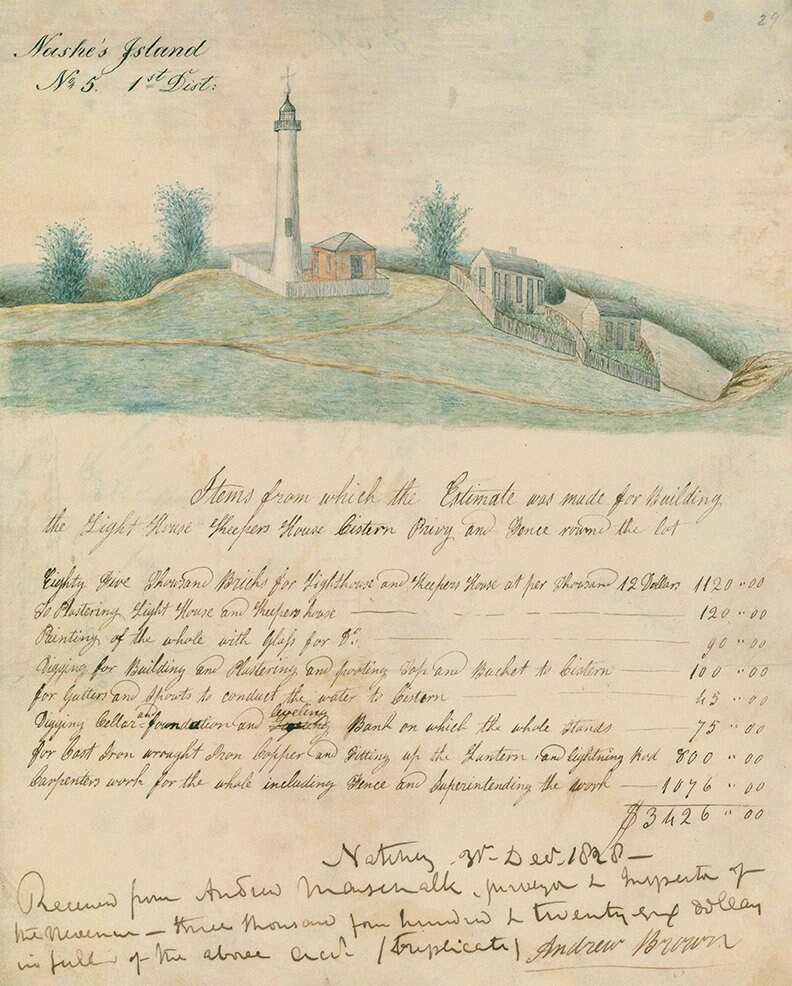 29
Nashe's Island
No 5. 1st Dist:
Items from which the Estimate was made for Building
the Light House Keepers House Cistern Privy and Fence round the lot
Eighty Five Thousand Bricks for Lighthouse and Keepers House at per Thousand 12 Dollars 1120 " 00
To Plastering Light House and Keepers house 120 " 00
Painting of the whole with Glass for Do. 90 " 00
Digging for Building and Plastering and footing Top and Bucket to Cistern 100 " 00
for Gutters and Spouts to conduct the water to Cistern 45 " 00
Digging Cellar and foundation and leveling Bank on which the whole stands 75 " 00
for Cast Iron wrought Iron Copper and Fitting up the Lantern and Lightning Rod 800 " 00
Carpenters work for the whole including Fence and Superintending the work 1076 " 00
$3426 " 00
Natchez Decr. 1828
Received from Andrew Marschalk, surveyor & Inspector of
the revenue — three thousand four hundred & twenty six dollars
in full of the above acct. (Duplicate) Andrew Brown